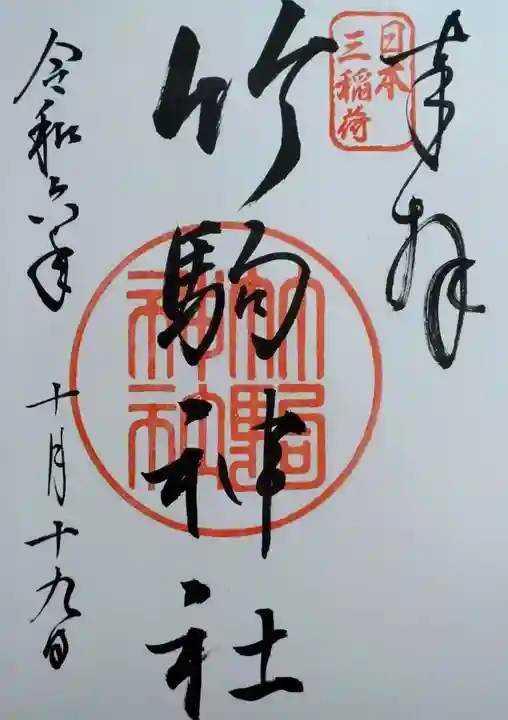 奉拝
日本
三稲荷
竹駒神社
竹駒
神社
令和六年
十月十九日